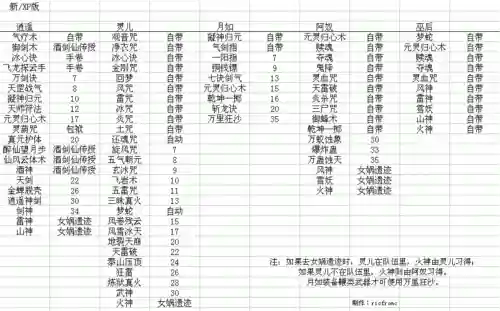 新/XP版
逍遥 灵儿 月如 阿奴 巫后
气疗术 自带 观音咒 自带 凝神归元 自带 元灵归心术 自带 梦蛇 自带
御剑术 酒剑仙传授 净衣咒 自带 气剑指 自带 赎魂 自带 元灵归心术 自带
冰心诀 手卷 冰心诀 自带 一阳指 7 夺魂 自带 赎魂 自带
飞龙探云手 手卷 金刚咒 自带 铜钱镖 9 鬼降 自带 夺魂 自带
万剑诀 7 回梦 自带 七诀剑气 13 灵血咒 自带 灵血咒 自带
天罡战气 8 风咒 自带 元灵归心术 15 天雷破 自带 风神 自带
凝神归元 10 雷咒 自带 乾坤一掷 16 炎杀咒 自带 雷神 自带
天师符法 12 冰咒 自带 斩龙诀 20 三尸咒 自带 雪妖 自带
元灵归心术 17 炎咒 自带 万里狂沙 35 御蜂术 自带 山神 自带
灵葫咒 包袱 土咒 自带 乾坤一掷 自带 火神 自带
真元护体 20 还魂咒 自动 万蚁蚀象 30
醉仙望月步 酒剑仙传授 旋风咒 7 爆炸蛊 33
仙风云体术 酒剑仙传授 五气朝元 8 万蛊蚀天 35
酒神 酒剑仙传授 玄冰咒 9 风神 女娲遗迹
天剑 22 飞岩术 10 雪妖 女娲遗迹
金蝉脱壳 26 五雷咒 11 火神 女娲遗迹
逍遥神剑 30 三昧真火 13
剑神 34 梦蛇 自动
雷神 女娲遗迹 风卷残云 15
山神 女娲遗迹 风雪冰天 17
地裂天崩 20
天雷破 22
泰山压顶 24 注：如果去女娲遗迹时，灵儿在队伍里，火神由灵儿习得；
狂雷 26 如果灵儿不在队伍里，火神则由阿奴习得。
炼狱真火 28 月如装备鞭类武器才可使用万里狂沙。
武神 30
火神 女娲遗迹